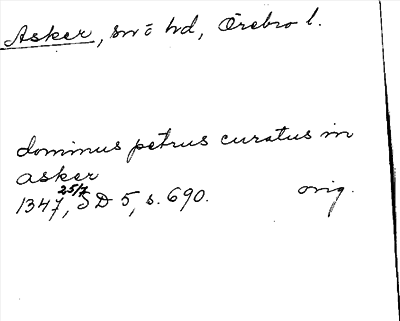 Asker, sn o hd, Örebro l.
dominus petrus curatus in
asker
1347 25/7, SD 5, s. 690. orig.